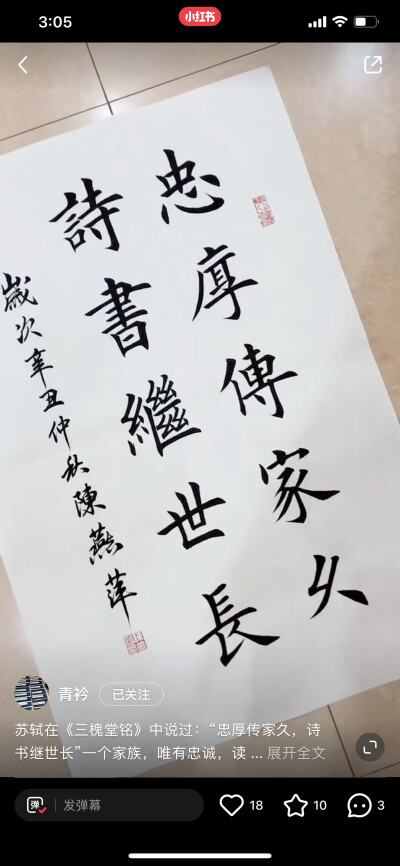 3:05
小红书
忠厚傳家久
詩書繼世長
歲次辛丑仲秋陳燕萍
青衿
已关注
苏轼在《三槐堂铭》中说过：“忠厚传家久，诗
书继世长”一个家族，唯有忠诚，读 ... 展开全文
弹
发弹幕
18
10
3